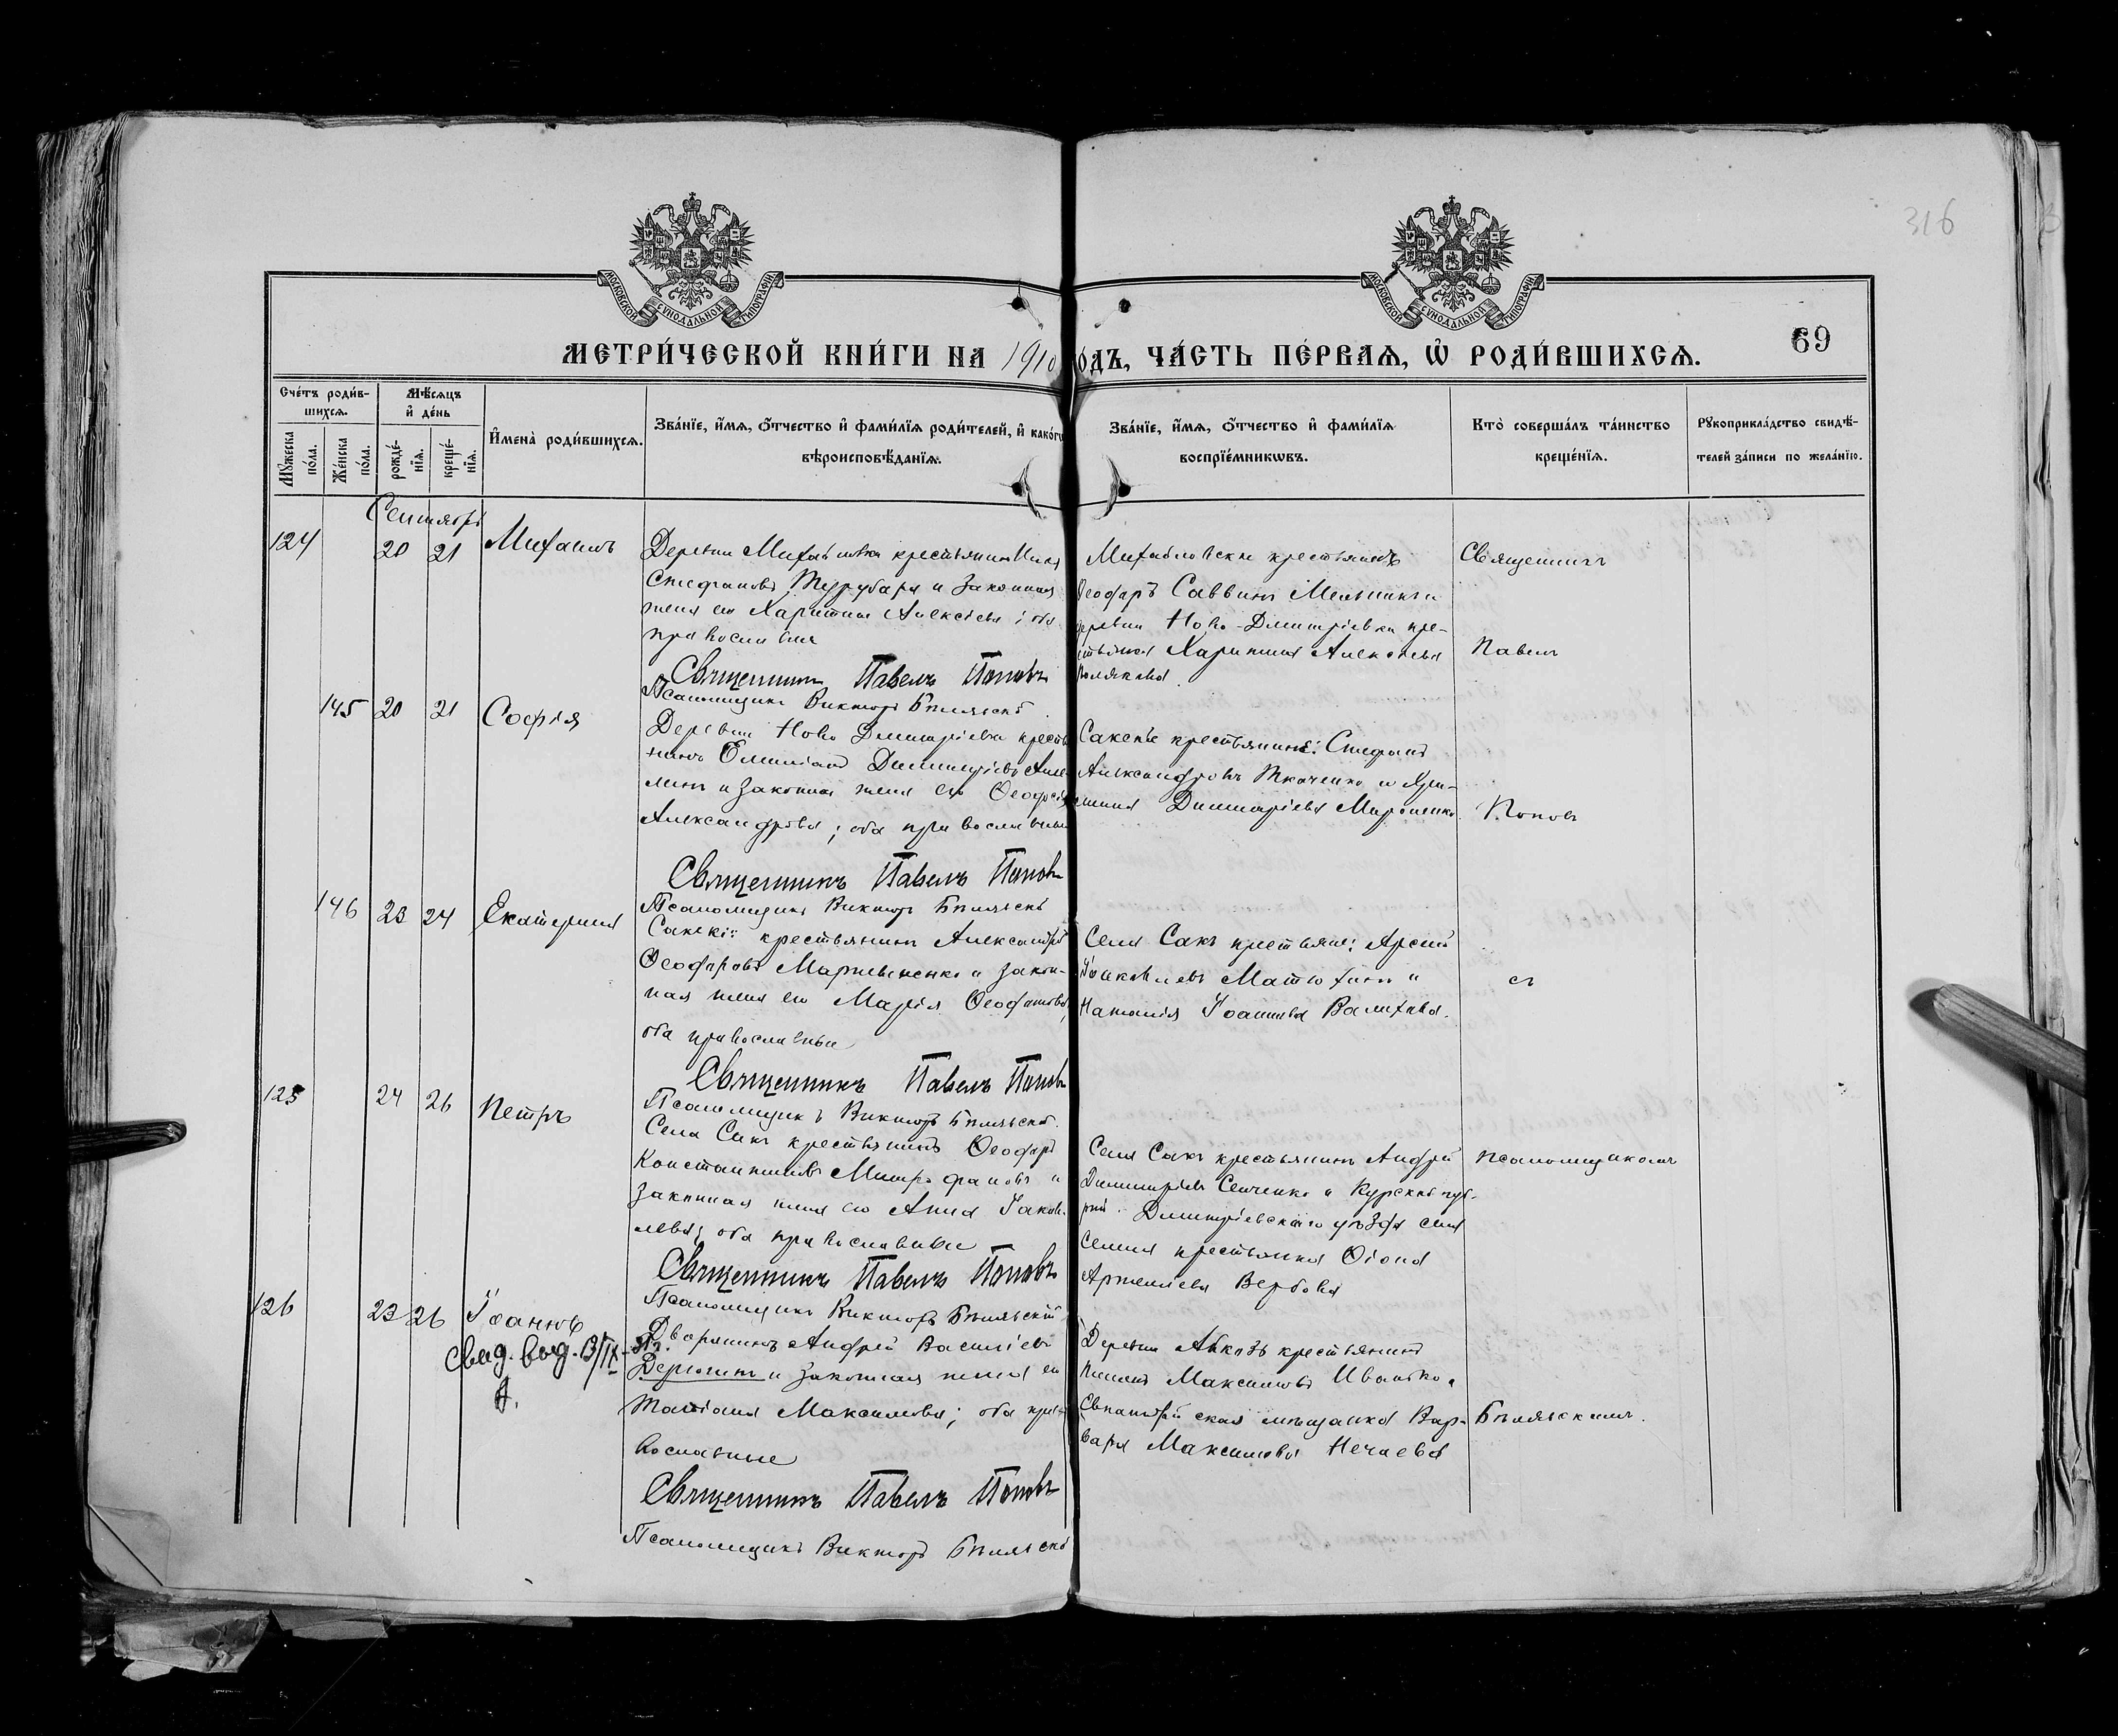 316
МОСКОВСКОЙ СѴНОДАЛЬНОЙ ТИПОГРАФІИ
МОСКОВСКОЙ СѴНОДАЛЬНОЙ ТИПОГРАФІИ
69
МЕТРИ́ЧЕСКОЙ КНИ́ГИ НА 1910 ОДЪ, ЧА́СТЬ ПЕ́РВАѦ, Ѡ҆ РОДИ́ВШИХСѦ.
Сче́тъ роди́в-
шихсѧ.
Мѣ́сѧцъ
и҆ де́нь
Мꙋ́жеска по́ла.
Же́нска по́ла.
рожде́-
нїѧ.
креще́-
нїѧ.
И҆мена̀ роди́вшихсѧ.
Зва́нїе, и҆́мѧ, ѻ҆́тчество и҆ фами́лїѧ роди́телей, и҆ како́гѡ
вѣроисповѣ́данїѧ.
Зва́нїе, и҆́мѧ, ѻ҆́тчество и҆ фами́лїѧ
воспрїе́мникѡвъ.
Кто̀ соверша́лъ та́инство
креще́нїѧ.
Рꙋкоприкла́дство свидѣ́-
телей за́писи по жела́нїю.
Сентябрь
124 20 21 Михаилъ
Деревни крестьянинъ
Стефановъ и законная
жена его Харитина Алексіева; оба
православные
Священникъ Павелъ Поповъ
Псаломщикъ Викторъ Бѣлявскій
крестьянинъ
Ѳеодоръ Саввинъ Мельникъ и
деревни Ново-Димитріевки кре-
стьянка Харитина Алексіева
Полякова.
Священникъ
Павелъ
145 20 21 Софія
Деревни Ново Димитріевки крестья
нинъ Емиліанъ Димитріевъ
и законная жена его Ѳеодосія
Александрова; оба православные
Священникъ Павелъ Поповъ
Псаломщикъ Викторъ Бѣлявскій
Сакскіе крестьяне: Стефанъ
Александровъ Ткаченко и
Димитріева Мироненко.
Поповъ
146 23 24 Екатерина
Сакскій крестьянинъ Александръ
Ѳеодоровъ Мартыненко и закон-
ная жена его Марія
оба православные
Священникъ Павелъ Поповъ
Псаломщикъ Викторъ Бѣлявскій.
Села Сакъ крестьяне: Арсеній
Іаковлевъ Матюхинъ и
Наталія Іоаннова
съ
125 24 26 Петръ
Села Сакъ крестьянинъ Ѳеодоръ
Константиновъ Митрофановъ и
законная жена его Анна Іаков-
лева; оба православные
Священникъ Павелъ Поповъ
Псаломщикъ Викторъ Бѣлявскій
Села Сакъ крестьянинъ Андрей
Димитріевъ Сенченко и Курской губ-
рніи Димитріевскаго уѣзда села
крестьянка
Артеміева Вербова
псаломщикомъ
126 23 26 Іоаннъ
свид. выд. 13/IX-
Дворянинъ Андрей Василіевъ
Дерюгинъ и законная жена его
Татіана Максимова; оба пра-
вославные
Священникъ Павелъ Поповъ
Псаломщикъ Викторъ Бѣлявскій
Деревни крестьянинъ
Максимовъ Иванько и
Евпаторійская мѣщанка Вар-
вара Максимова Нечаева
Бѣлявскимъ.